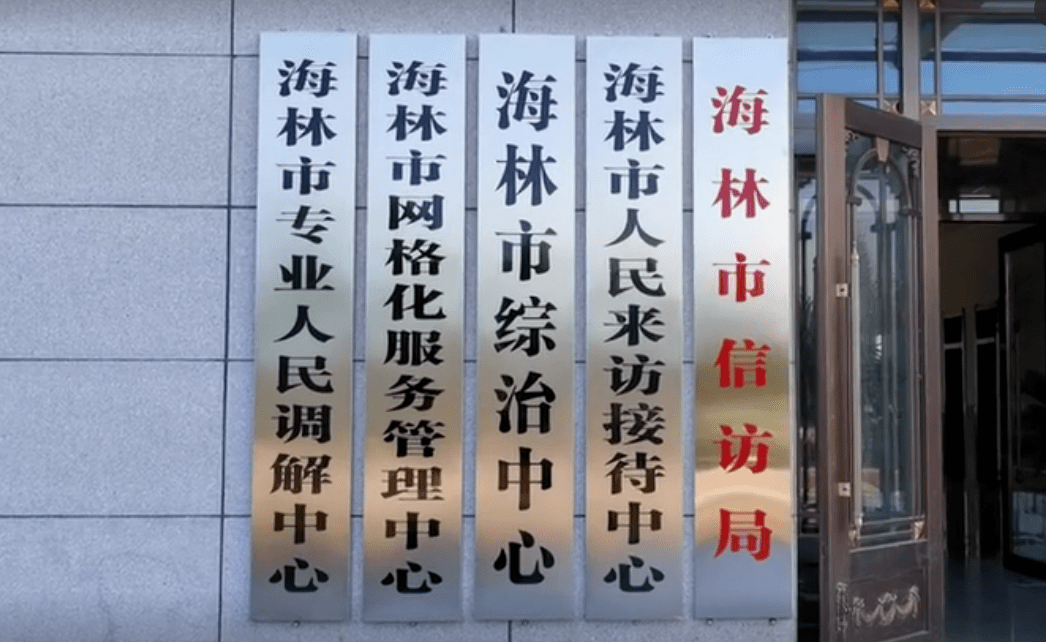 海林市专业人民调解中心
海林市网格化服务管理中心
海林市综治中心
海林市人民来访接待中心
海林市信访局